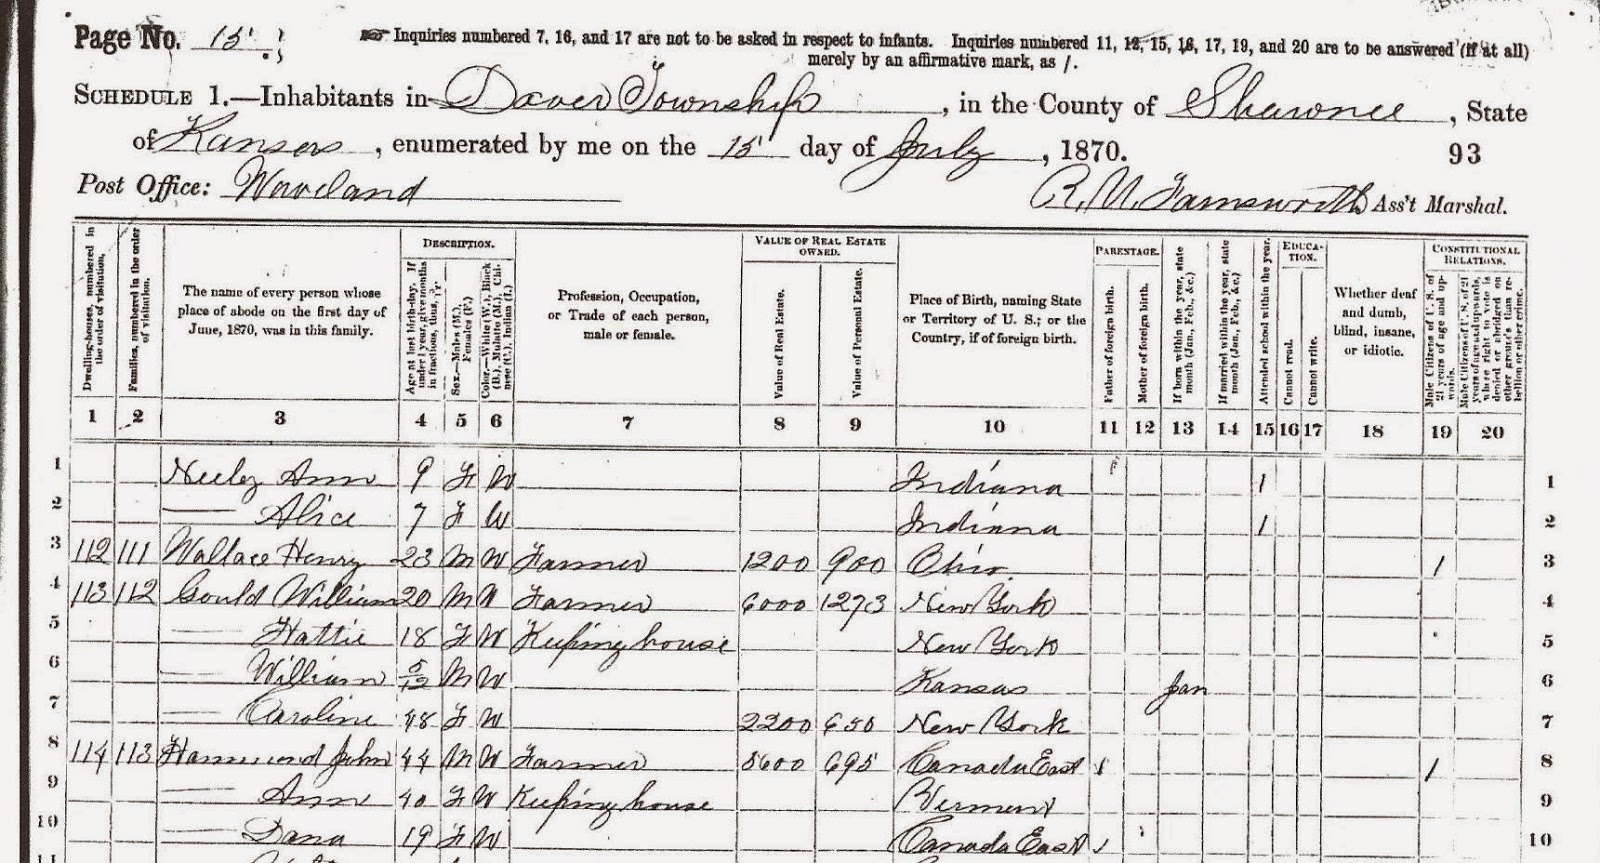 Page No. 15
☞ Inquiries numbered 7, 16, and 17 are not to be asked in respect to infants. Inquiries numbered 11, 12, 15, 16, 17, 19, and 20 are to be answered (if at all)
merely by an affirmative mark, as /.
SCHEDULE 1.—Inhabitants in Dover Township, in the County of Shawnee, State
of Kansas, enumerated by me on the 15 day of July, 1870. 93
Post Office: Waveland
Farnsworth Ass't Marshal.
Dwelling-houses, numbered in the order of visitation.
Families, numbered in the order of visitation.
The name of every person whose
place of abode on the first day of
June, 1870, was in this family.
DESCRIPTION.
Age at last birth-day. If under 1 year, give months in fractions, thus,
Sex.—Males (M.), Females (F.)
Color.—White (W.), Black (B.), Mulatto (M.), Chinese (C.), Indian (I.)
Profession, Occupation,
or Trade of each person,
male or female.
VALUE OF REAL ESTATE
OWNED.
Value of Real Estate.
Value of Personal Estate.
Place of Birth, naming State
or Territory of U. S.; or the
Country, if of foreign birth.
PARENTAGE.
Father of foreign birth.
Mother of foreign birth.
If born within the year, state month (Jan., Feb., &c.)
If married within the year, state month (Jan., Feb., &c.)
Attended school within the year.
EDUCA-
TION.
Cannot read.
Cannot write.
Whether deaf
and dumb,
blind, insane,
or idiotic.
CONSTITUTIONAL
RELATIONS.
Male Citizens of U. S. of 21 years of age and upwards.
Male Citizens of U. S. of 21 years of age and upwards, where right to vote is denied or abridged on other grounds than rebellion or other crime.
1 2 3 4 5 6 7 8 9 10 11 12 13 14 15 16 17 18 19 20
1 Neeley Ann 9 F W Indiana / 1
2 — Alice 7 F W Indiana / 2
3 112 111 Wallace Henry 23 M W Farmer 1200 900 Ohio / 3
4 113 112 Gould William 20 M W Farmer 6000 1273 New York 4
5 — Hattie 18 F W Keeping house New York 5
6 — William 5/12 M W Kansas Jan 6
7 — Caroline 48 F W 2200 650 New York 7
8 114 113 Hammond John 44 M W Farmer 5600 695 Canada East / / 8
9 — Ann 40 F W Keeping house Vermont 9
10 — Dana 19 F W Canada East / 10
11